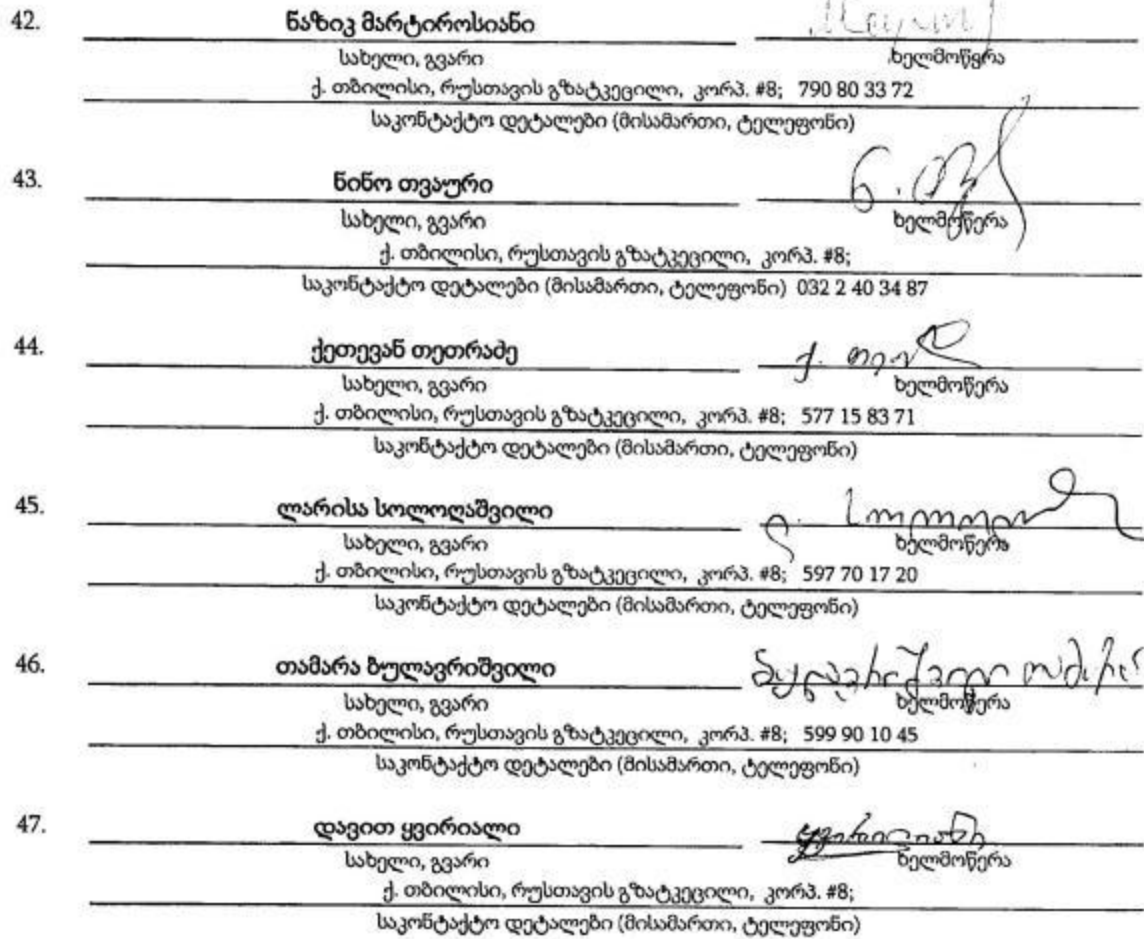 42. ნაზიკ მარტიროსიანი
სახელი, გვარი ხელმოწერა
ქ. თბილისი, რუსთავის გზატკეცილი, კორპ. #8; 790 80 33 72
საკონტაქტო დეტალები (მისამართი, ტელეფონი)
43. ნინო თვაური ნ. თვ
სახელი, გვარი ხელმოწერა
ქ. თბილისი, რუსთავის გზატკეცილი, კორპ. #8;
საკონტაქტო დეტალები (მისამართი, ტელეფონი) 032 2 40 34 87
44. ქეთევან თეთრაძე ქ.
სახელი, გვარი ხელმოწერა
ქ. თბილისი, რუსთავის გზატკეცილი, კორპ. #8; 577 15 83 71
საკონტაქტო დეტალები (მისამართი, ტელეფონი)
45. ლარისა სოლოღაშვილი ლ.
სახელი, გვარი ხელმოწერა
ქ. თბილისი, რუსთავის გზატკეცილი, კორპ. #8; 597 70 17 20
საკონტაქტო დეტალები (მისამართი, ტელეფონი)
46. თამარა ზულავრიშვილი
სახელი, გვარი ხელმოწერა
ქ. თბილისი, რუსთავის გზატკეცილი, კორპ. #8; 599 90 10 45
საკონტაქტო დეტალები (მისამართი, ტელეფონი)
47. დავით ყვირიალი
სახელი, გვარი ხელმოწერა
ქ. თბილისი, რუსთავის გზატკეცილი, კორპ. #8;
საკონტაქტო დეტალები (მისამართი, ტელეფონი)